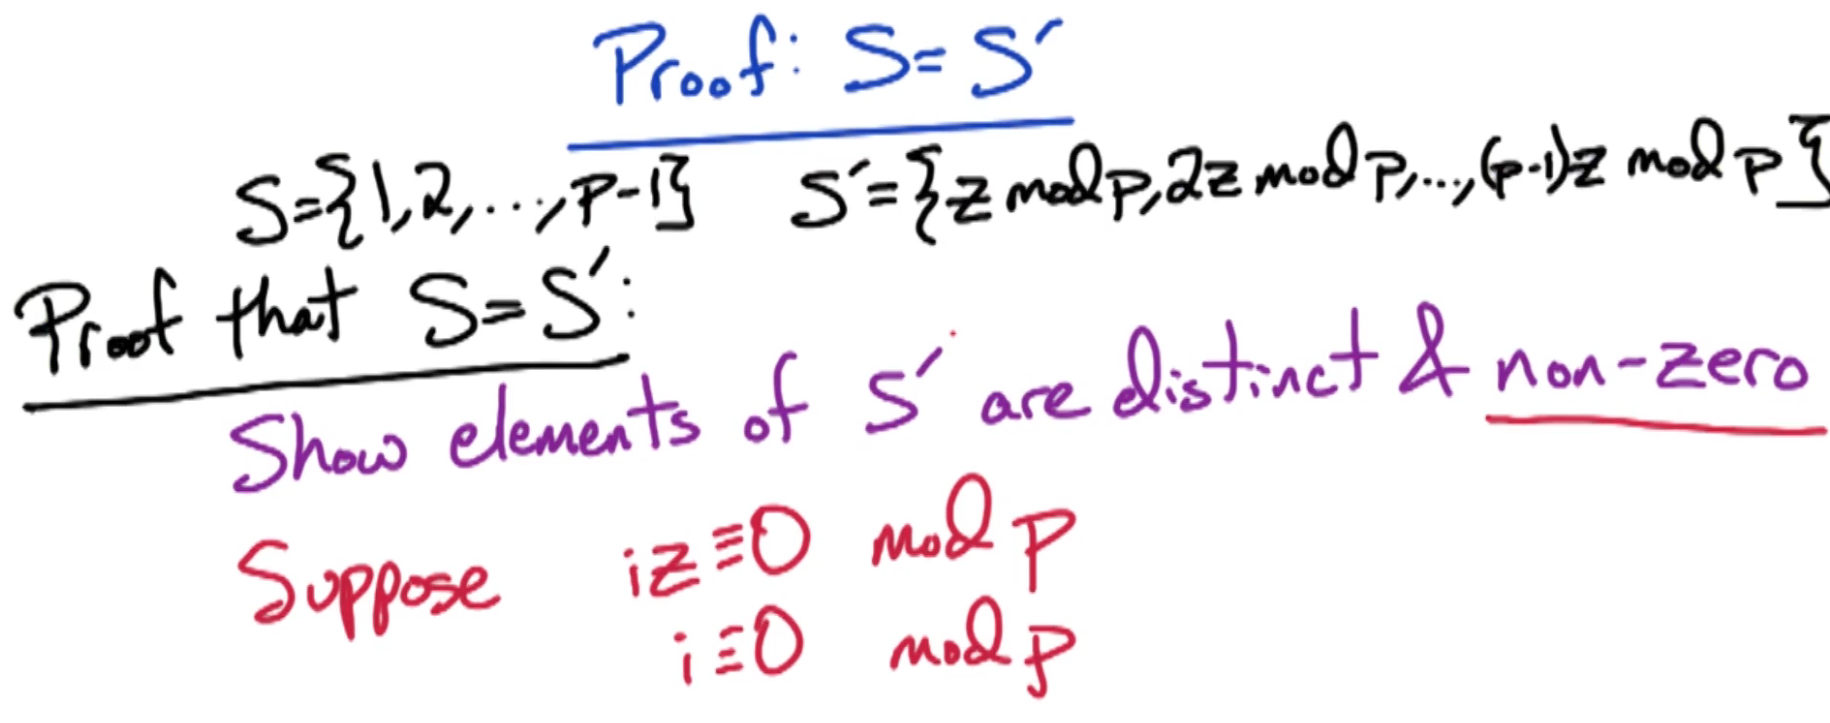 Proof: S=S′
S={1,2,...,p-1} S′={z mod p, 2z mod p,...,(p-1)z mod p}
Proof that S=S′:
Show elements of S′ are distinct & non-zero
Suppose iz≡0 mod p
i≡0 mod p